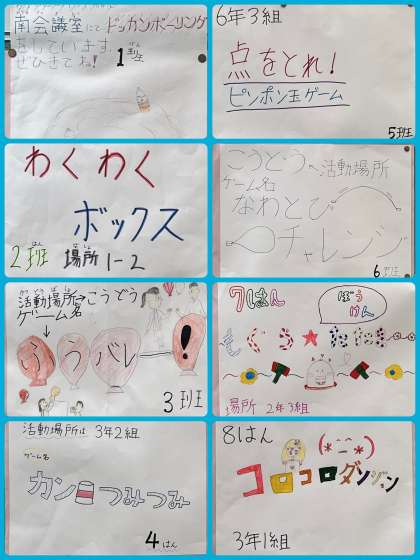 南会議室にて ドッカンボーリング
をしています。
ぜひきてね!
1班
6年3組
点をとれ!
ピンポン玉ゲーム
5班
わくわく
ボックス
2班 場所 1-2
こうどう←活動場所
ゲーム名
なわとび
チャレンジ
6班
活動場所→こうどう
ゲーム名
ふうバレー!
3班
7はん
ぼうけん
もぐら★たたき
場所 2年3組
活動場所は 3年2組
ゲーム名
カンつみつみ
4はん
8はん
コロコロダンジョン
3年1組